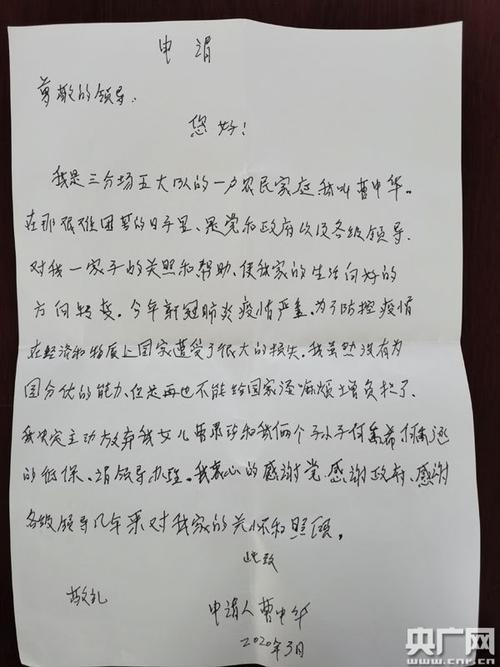 申请
尊敬的领导:
您好!
我是三分场五大队的一户农民家庭我叫曹中华。
在那很难困苦的日子里、是党和政府以及各级领导.
对我一家子的关照和帮助、使我家的生活向好的
方向转变。今年新冠肺炎疫情严重、为了防控疫情
在经济和物质上国家遭受了很大的损失、我虽然没有为
国分忧的能力、但是再也不能给国家添麻烦增负担了、
我决定主动放弃我女儿曹和我俩个孙子何
的低保、请领导办理。我衷心的感谢党.感谢政府、感谢
各级领导几年来对我家的关怀和照顾。
此致
敬礼
申请人曹中华
2020年3月
央广网
www.cnr.cn